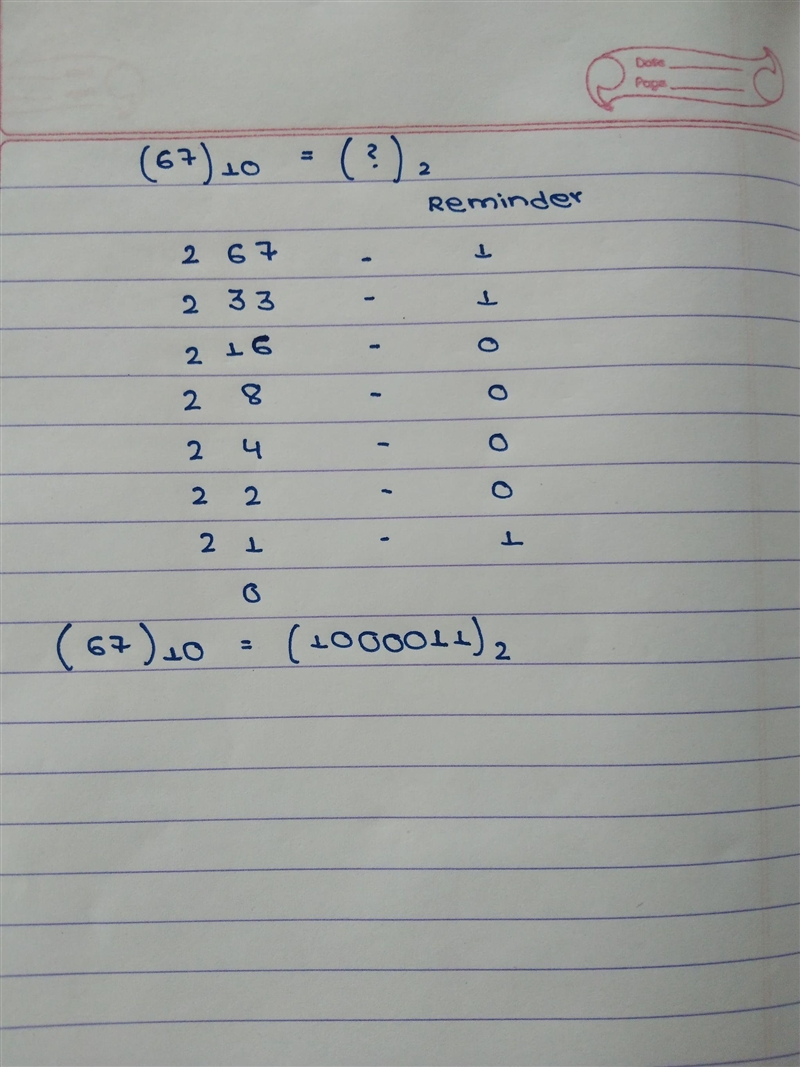 Date
Page
(67)10 = (?)2
Reminder
2 67 - 1
2 33 - 1
2 16 - 0
2 8 - 0
2 4 - 0
2 2 - 0
2 1 - 1
0
(67)10 = (1000011)2